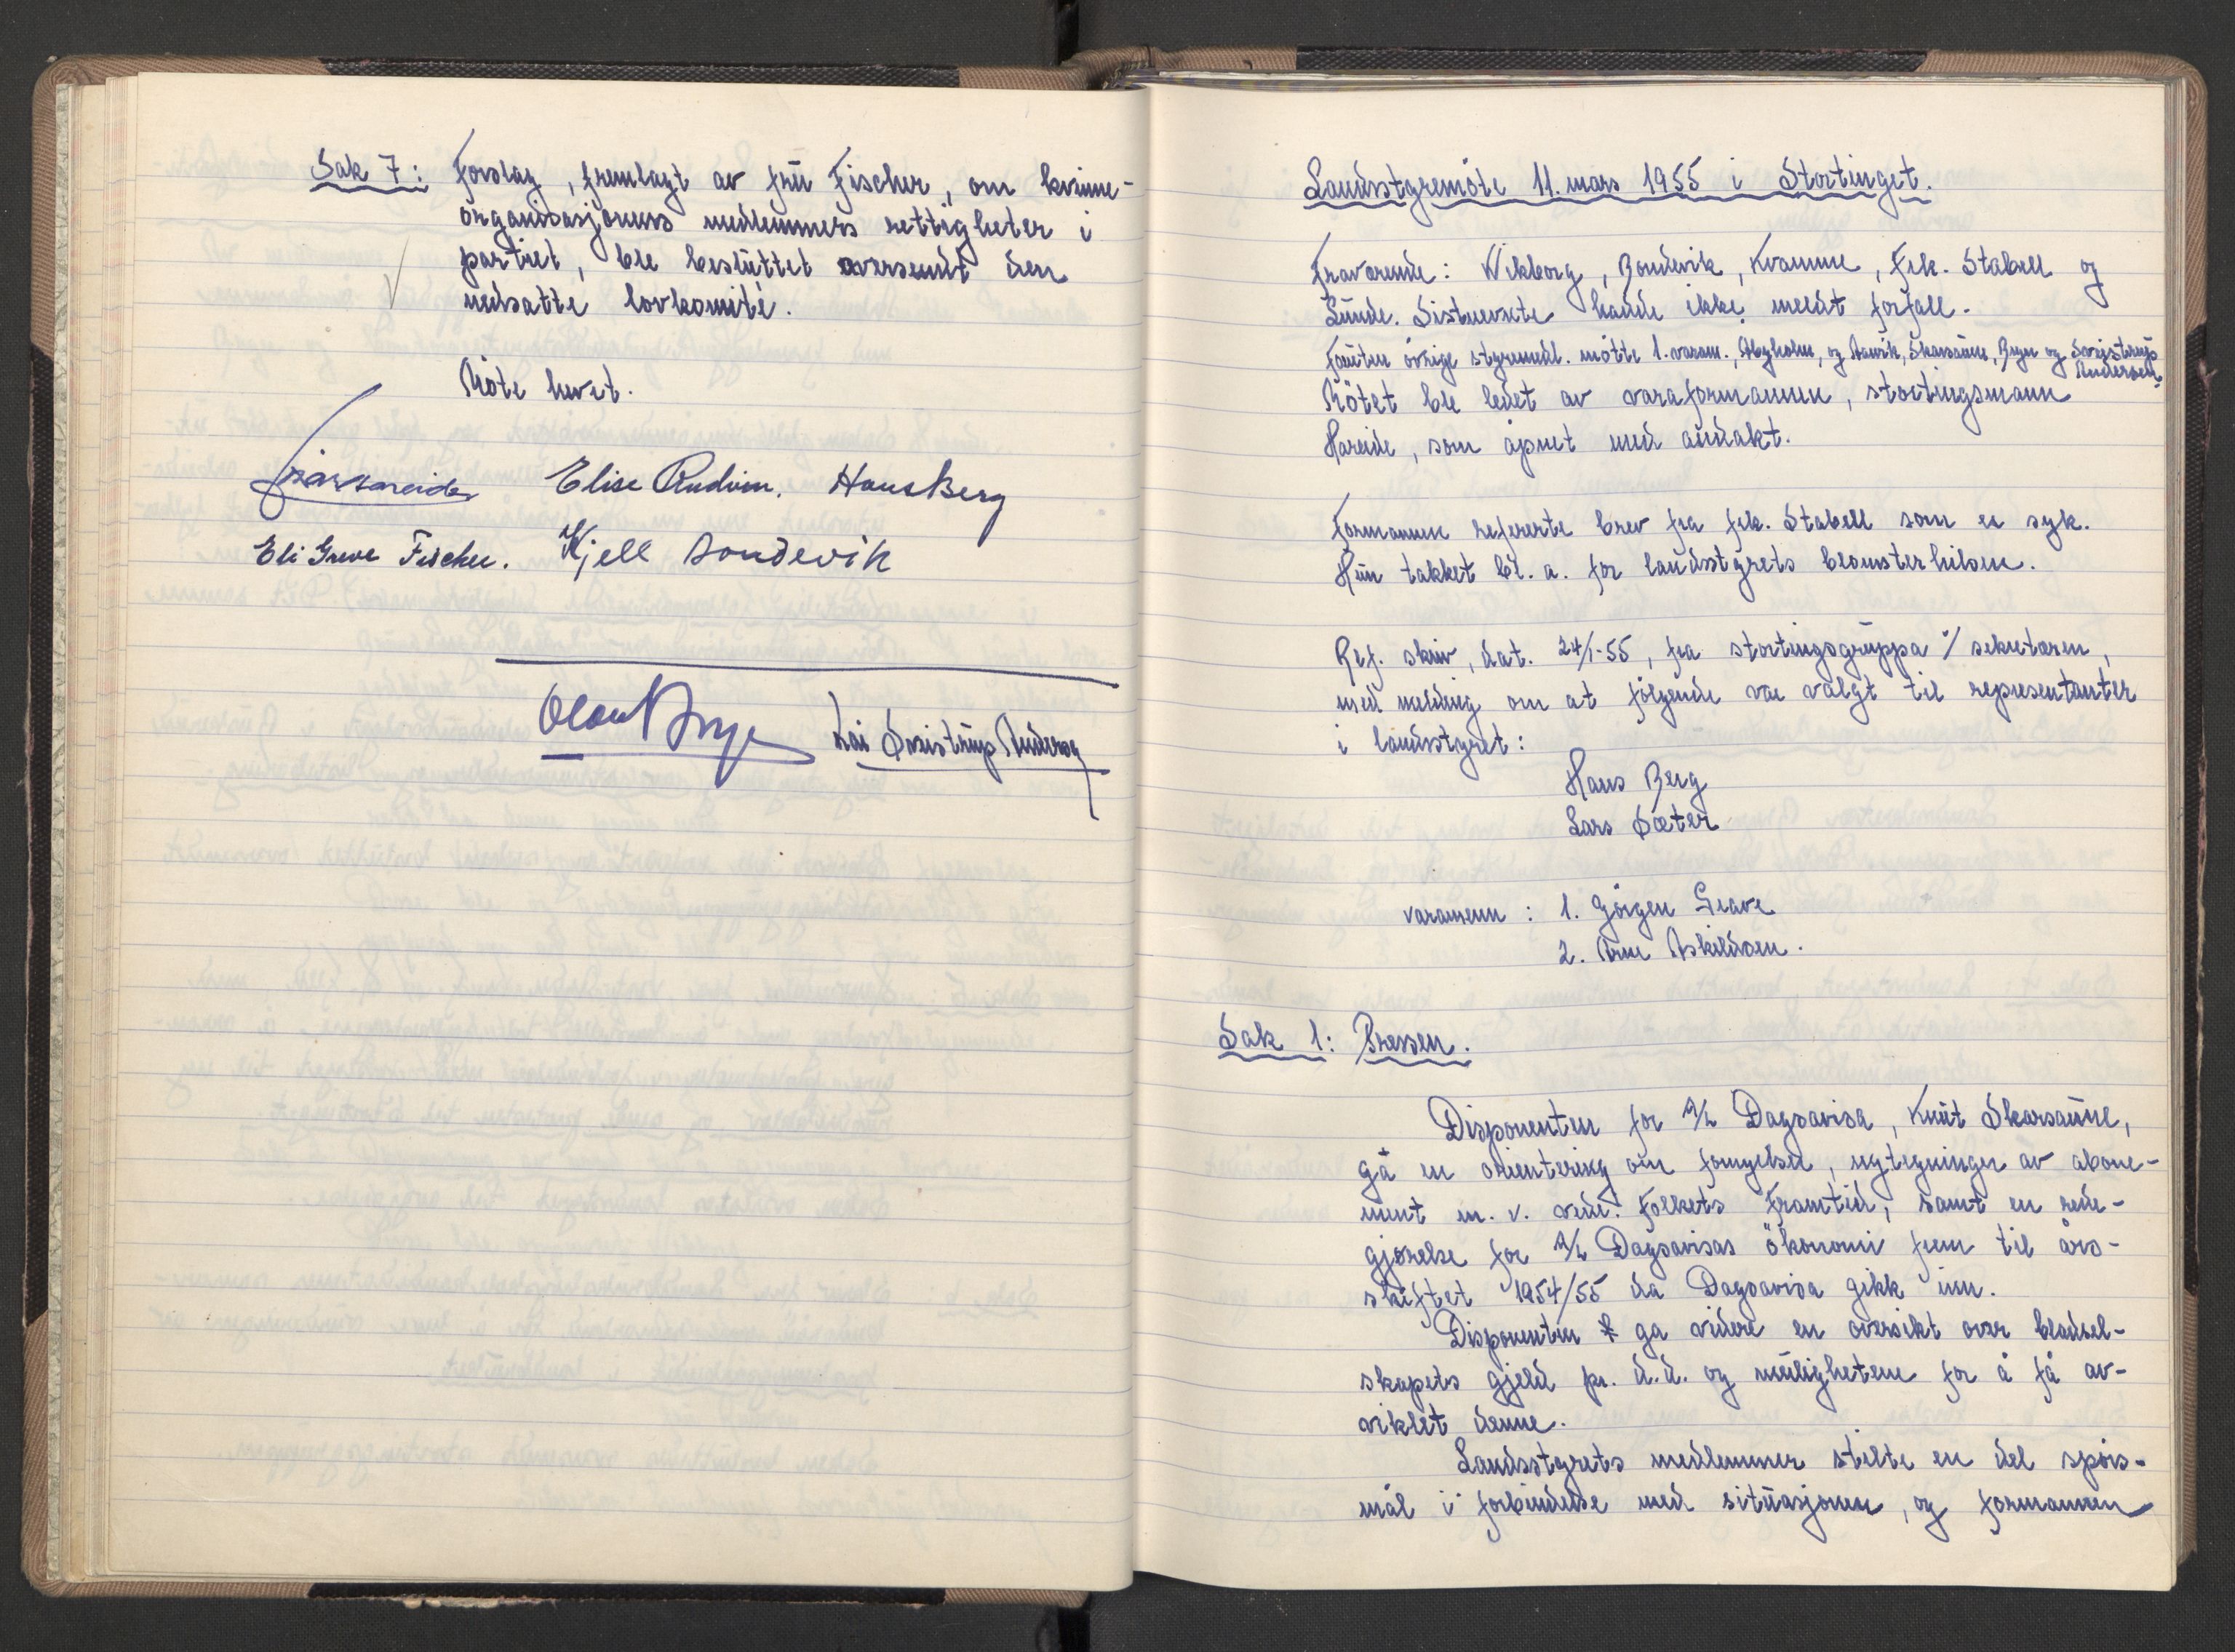 Sak 7: Forslag, fremlagt av frü Fischer, om kvinne-
organisasjonens medlemmers rettigheter i
partiet, ble beslüttet oversendt den
nedsatte lovkomité.
Möte hevet.
Elise Rudvin. Hans Berg
Eli Greve Fischer. Kjell Bondevik
Olav Brye Kai Sveistrüp Andersen
Landsstyremöte 11. mars 1955 i Stortinget.
Fraværende: Wikborg, Bondevik, Kvamme, Frk. Stabell og
Lünde. Sistnevnte hadde ikke meldt forfall.
Foruten övrige styremedl. mötte 1. varam., og Skarsaüne, Brye og Sveistrüp
Andersen.
Mötet ble ledet av varaformannen, stortingsmann
Hareide, som åpnet med andakt.
Formannen refererte brev fra frk. Stabell som er syk.
Hün takket bl. a. for landsstyrets blomsterhilsen.
Ref. skriv, dat. 24/1-55, fra stortingsgrüppa v/ sekretæren,
med melding om at fölgende var valgt til representanter
i landsstyret:
Hans Berg
Lars Sæter
varamenn: 1. Jörgen Grave
2. Arne Askildsen.
Sak 1: Pressen.
Disponenten for A/L Dagsavisa, Knüt Skarsaüne,
ga en orientering om fornyelser, nytegninger av abone-
ment m. v. vedr. Folkets Framtid, samt en rede-
gjörelse for A/L Dagsavisas ökonomi frem til års-
skiftet 1954/55 da Dagsavisa gikk inn.
Disponenten ga videre en oversikt over bladsel-
skapets gjeld pr. d.d. og mülighetene for å få av-
viklet denne.
Landsstyrets medlemmer stilte en del spörs-
mål i forbindelse med sitüasjonen, og formannen